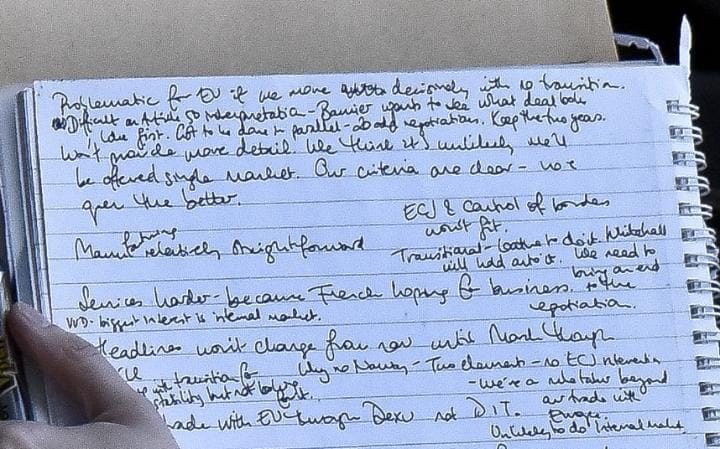 Problematic for EU if we move decisively with no transition.
Difficult on Article 50 interpretation - Barnier wants to see what deal looks
like first. Got to be done in parallel - 20 odd negotiations. Keep the two years.
Won't provide more detail. We think it's unlikely we'll
be offered single market. Our criteria are clear -
open the better.
ECJ & control of borders
won't fit.
Manufacturing relatively straightforward
Transitional - loathe to do it. Whitehall
will hold onto it. We need to
bring an end
to the
negotiation.
Services harder - because French hoping for business.
WD - biggest interest is internal market.
Headlines won't change from now until March though
with transition for
stability but not
Why no Norway - Two elements - no ECJ intervention
- we're a beyond
our trade with
Europe.
trade with EU through Dexu not DIT.
Unlikely to do internal market.